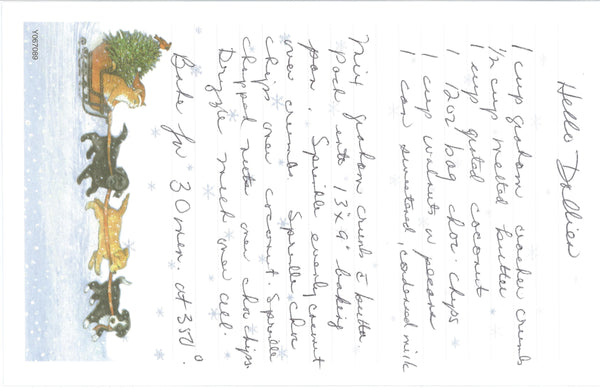 Hello Dollies
1 cup graham cracker crumbs
1/2 cup melted butter
1 cup grated coconut
1 12oz bag choc. chips
1 cup walnuts or pecans
1 can sweetened, condensed milk
Mix graham crumbs c̄ butter.
Pat into 13"x9" baking
pan. Sprinkle evenly coconut
over crumbs. Sprinkle choc
chips over coconut. Sprinkle
chopped nuts over choc chips.
Drizzle milk over all.
Bake for 30 min at 350°.
Y067089